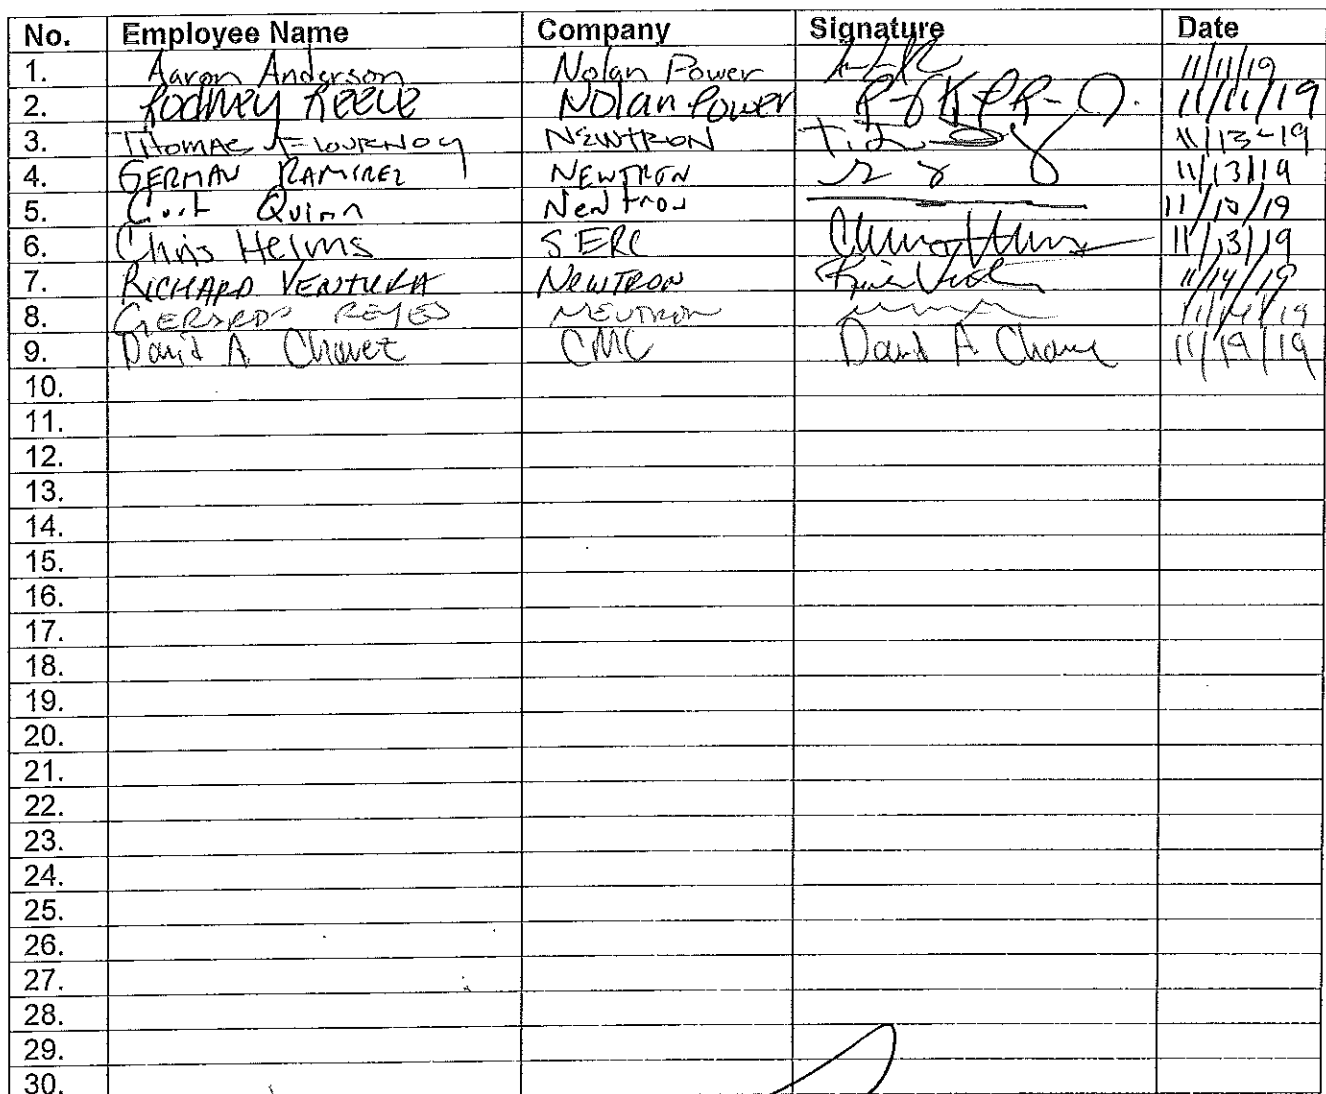 No. Employee Name Company Signature Date
1. Aaron Anderson Nolan Power 11/11/19
2. Rodney Reece Nolan Power 11/11/19
3. Thomas Flournoy NEWTRON 11/13-19
4. GERMAN RAMIREZ NEWTRON 11/13/19
5. Quinn Newtron 11/13/19
6. Chris Helms SERC 11/13/19
7. RICHARD VENTURA NEWTRON 11/14/19
8. GERARDO REYES NEUTRON 11/14/19
9. David A. Chavez CMC David A Chavez 11/19/19
10.
11.
12.
13.
14.
15.
16.
17.
18.
19.
20.
21.
22.
23.
24.
25.
26.
27.
28.
29.
30.